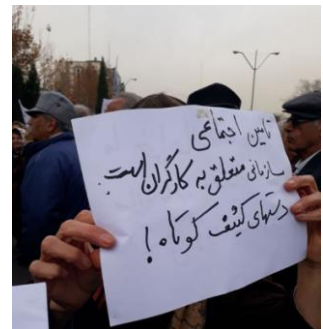 تامین اجتماعی
سازمانی متعلق به کارگران است
دستهای کثیف کوتاه!